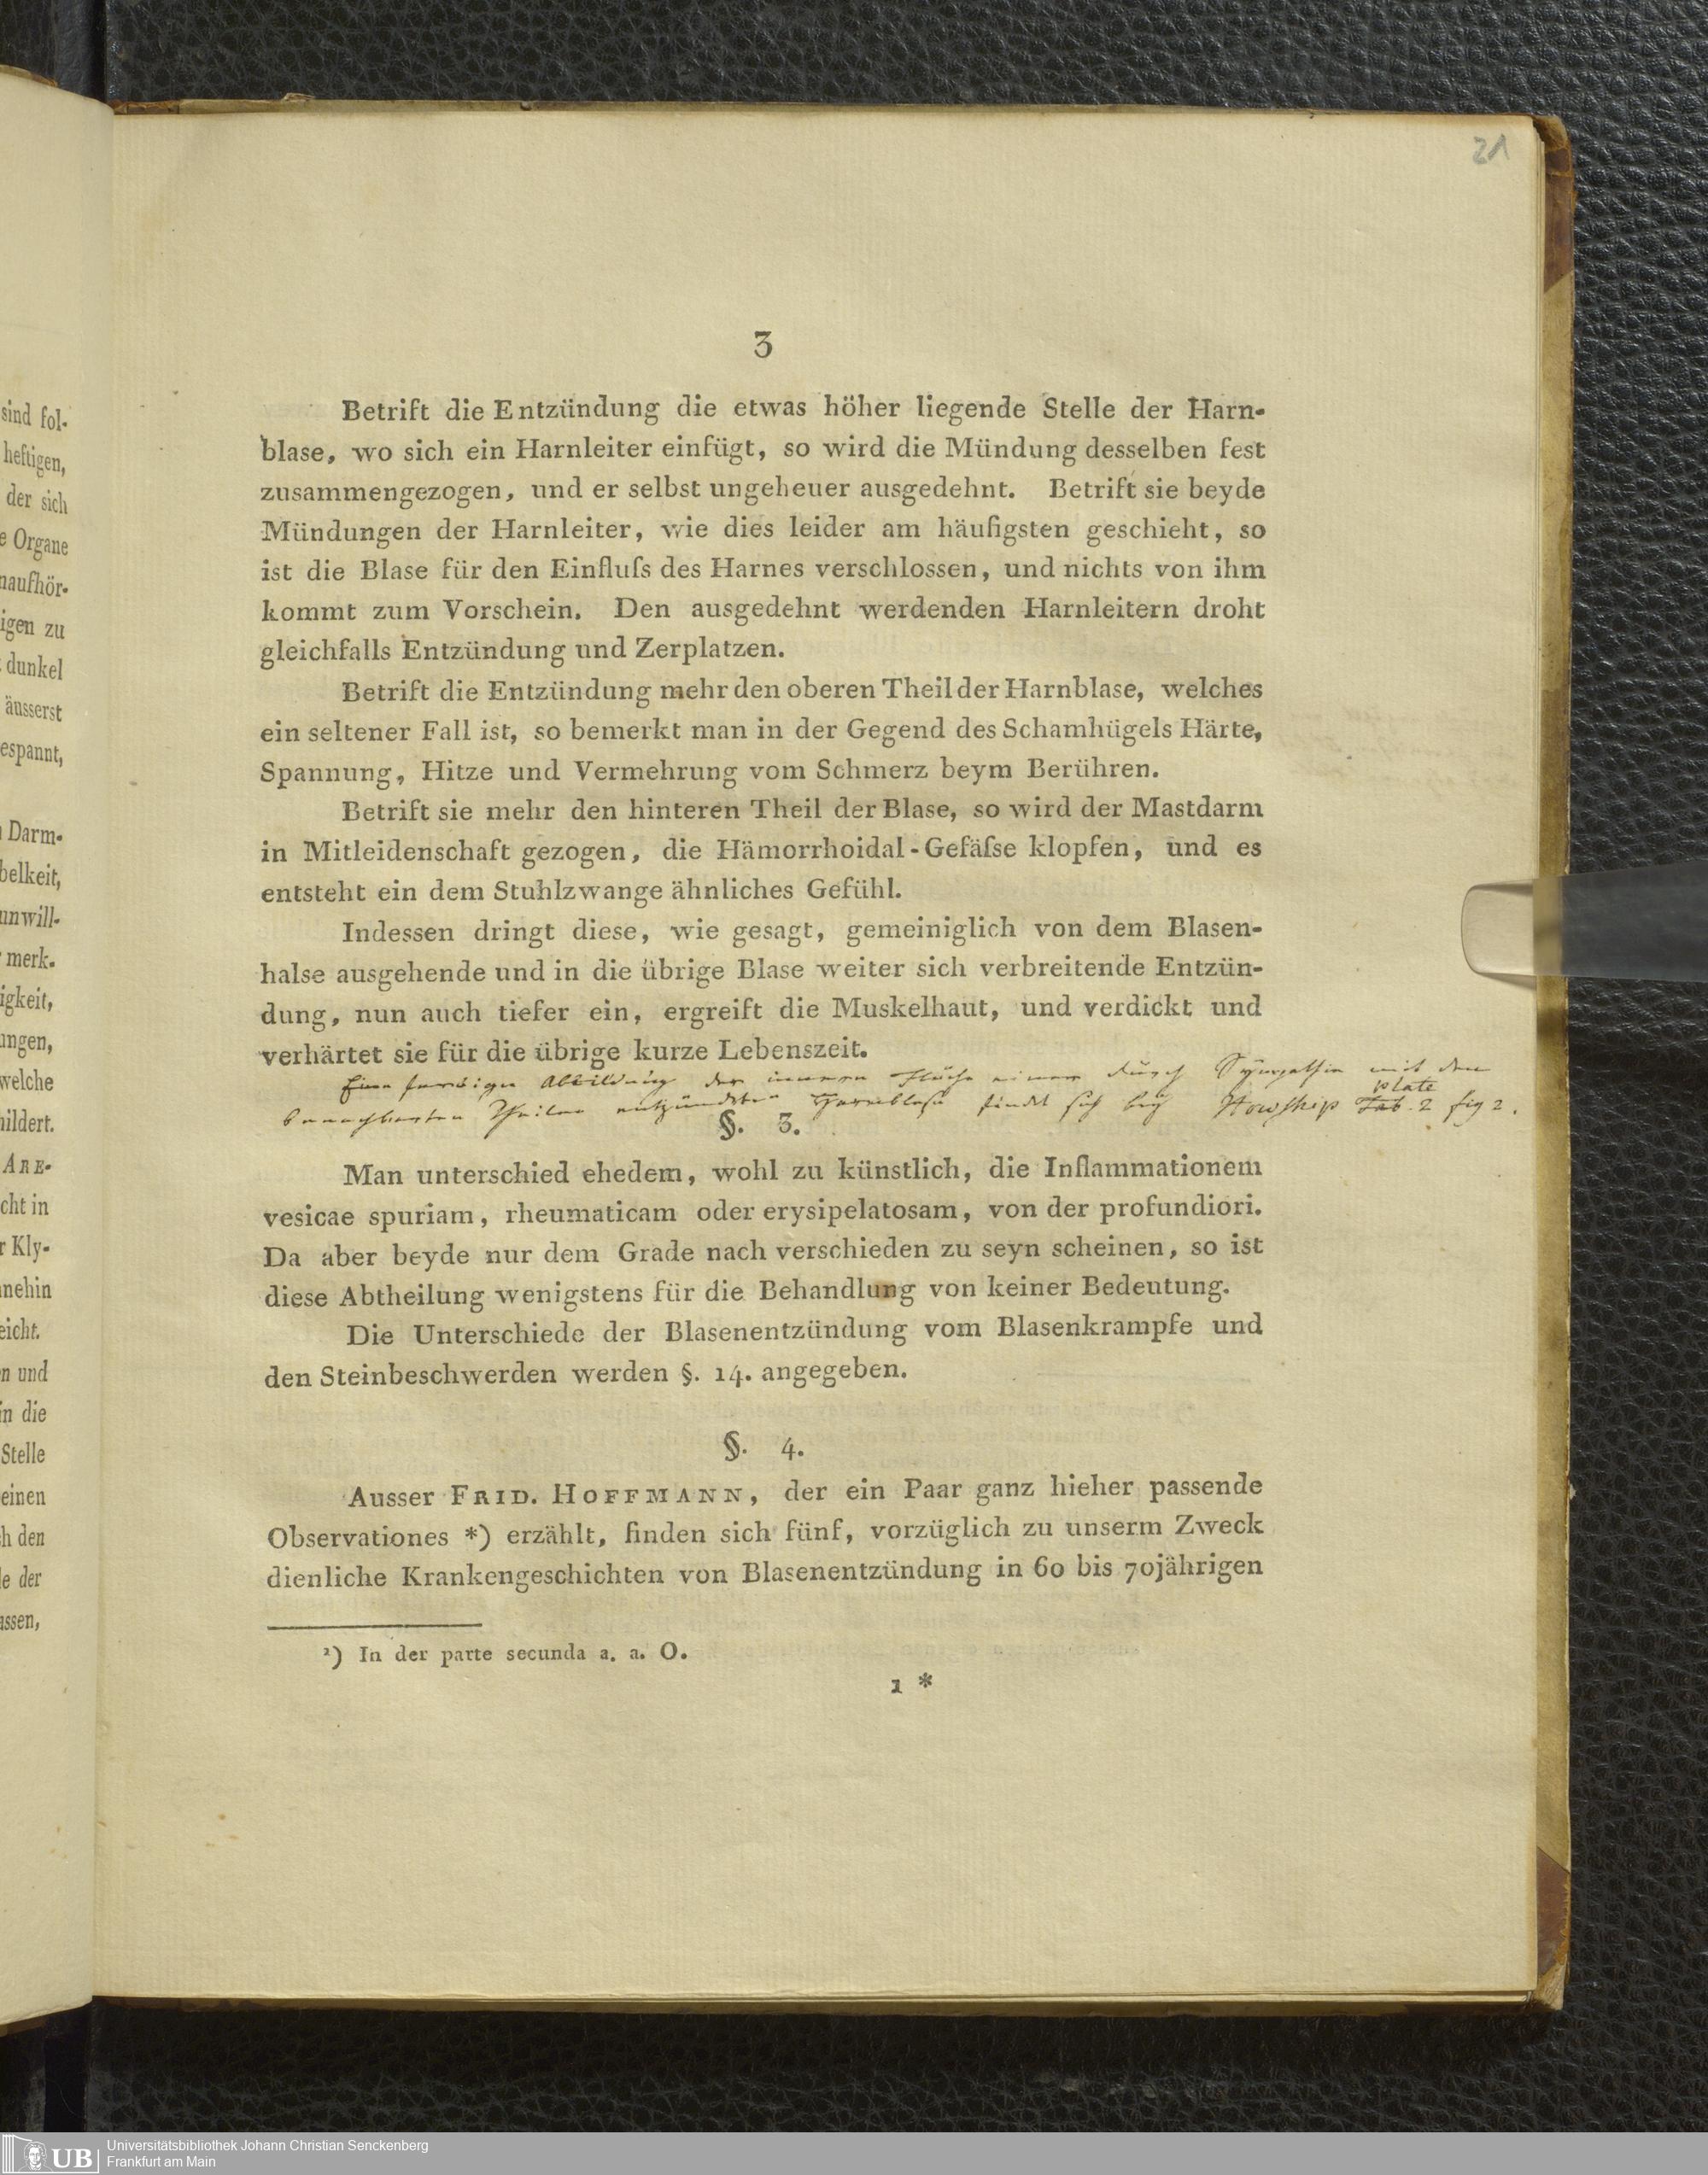 21
3
Betrift die Entzündung die etwas höher liegende Stelle der Harn-
blase, wo sich ein Harnleiter einfügt, so wird die Mündung desselben fest
zusammengezogen, und er selbst ungeheuer ausgedehnt. Betrift sie beyde
Mündungen der Harnleiter, wie dies leider am häufigsten geschieht, so
ist die Blase für den Einfluſs des Harnes verschlossen, und nichts von ihm
kommt zum Vorschein. Den ausgedehnt werdenden Harnleitern droht
gleichfalls Entzündung und Zerplatzen.
Betrift die Entzündung mehr den oberen Theil der Harnblase, welches
ein seltener Fall ist, so bemerkt man in der Gegend des Schamhügels Härte,
Spannung, Hitze und Vermehrung vom Schmerz beym Berühren.
Betrift sie mehr den hinteren Theil der Blase, so wird der Mastdarm
in Mitleidenschaft gezogen, die Hämorrhoidal-Gefäſse klopfen, und es
entsteht ein dem Stuhlzwange ähnliches Gefühl.
Indessen dringt diese, wie gesagt, gemeiniglich von dem Blasen-
halse ausgehende und in die übrige Blase weiter sich verbreitende Entzün-
dung, nun auch tiefer ein, ergreift die Muskelhaut, und verdickt und
verhärtet sie für die übrige kurze Lebenszeit.
Eine farbige Abbildung der innern Fläche einer durch Sympathie mit den
plate
benachbarten Theilen entzündeten Harnblase findet sich bey Howship Tab. 2 fig 2.
§. 3.
Man unterschied ehedem, wohl zu künstlich, die Inflammationem
vesicae spuriam, rheumaticam oder erysipelatosam, von der profundiori.
Da aber beyde nur dem Grade nach verschieden zu seyn scheinen, so ist
diese Abtheilung wenigstens für die Behandlung von keiner Bedeutung.
Die Unterschiede der Blasenentzündung vom Blasenkrampfe und
den Steinbeschwerden werden §. 14. angegeben.
§. 4.
Ausser FRID. HOFFMANN, der ein Paar ganz hieher passende
Observationes *) erzählt, finden sich fünf, vorzüglich zu unserm Zweck
dienliche Krankengeschichten von Blasenentzündung in 60 bis 70jährigen
²) In der parte secunda a. a. O.
1 *
sind fol-
heftigen,
der sich
e Organe
naufhör-
igen zu
dunkel
äusserst
espannt,
Darm-
belkeit,
unwill-
merk-
igkeit,
ungen,
welche
hildert.
ARE-
cht in
r Kly-
nehin
eicht.
n und
in die
Stelle
einen
h den
le der
assen,
UB
Universitätsbibliothek Johann Christian Senckenberg
Frankfurt am Main